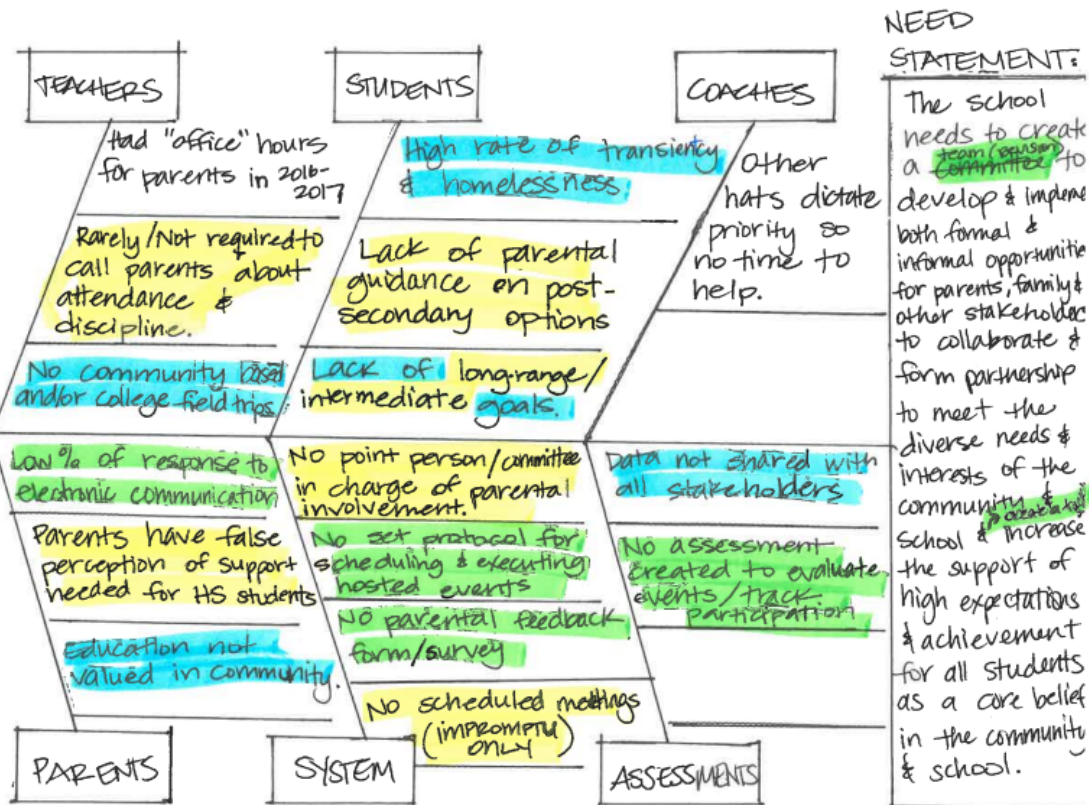 TEACHERS
Had "office" hours
for parents in 2016-
2017
Rarely/Not required to
call parents about
attendance &
discipline.
No community based
and/or college field trips.
STUDENTS
High rate of transiency
& homelessness.
Lack of parental
guidance on post-
secondary options
Lack of long-range/
intermediate goals.
COACHES
Other
hats dictate
priority so
no time to
help.
Low % of response to
electronic communication
Parents have false
perception of support
needed for HS students
Education not
valued in community.
PARENTS
No point person/committee
in charge of parental
involvement.
No set protocol for
scheduling & executing
hosted events
No parental feedback
form/survey
No scheduled meetings
(IMPROMPTU
ONLY)
SYSTEM
Data not shared with
all stakeholders
No assessment
created to evaluate
events/track
participation
ASSESSMENTS
NEED
STATEMENT:
The school
needs to create
team
a committee to
develop & impleme
both formal &
informal opportunitie
for parents, family &
other stakeholder
to collaborate &
form partnership
to meet the
diverse needs &
interests of the
community &
school & increase
the support of
high expectations
& achievement
for all students
as a core belief
in the community
& school.